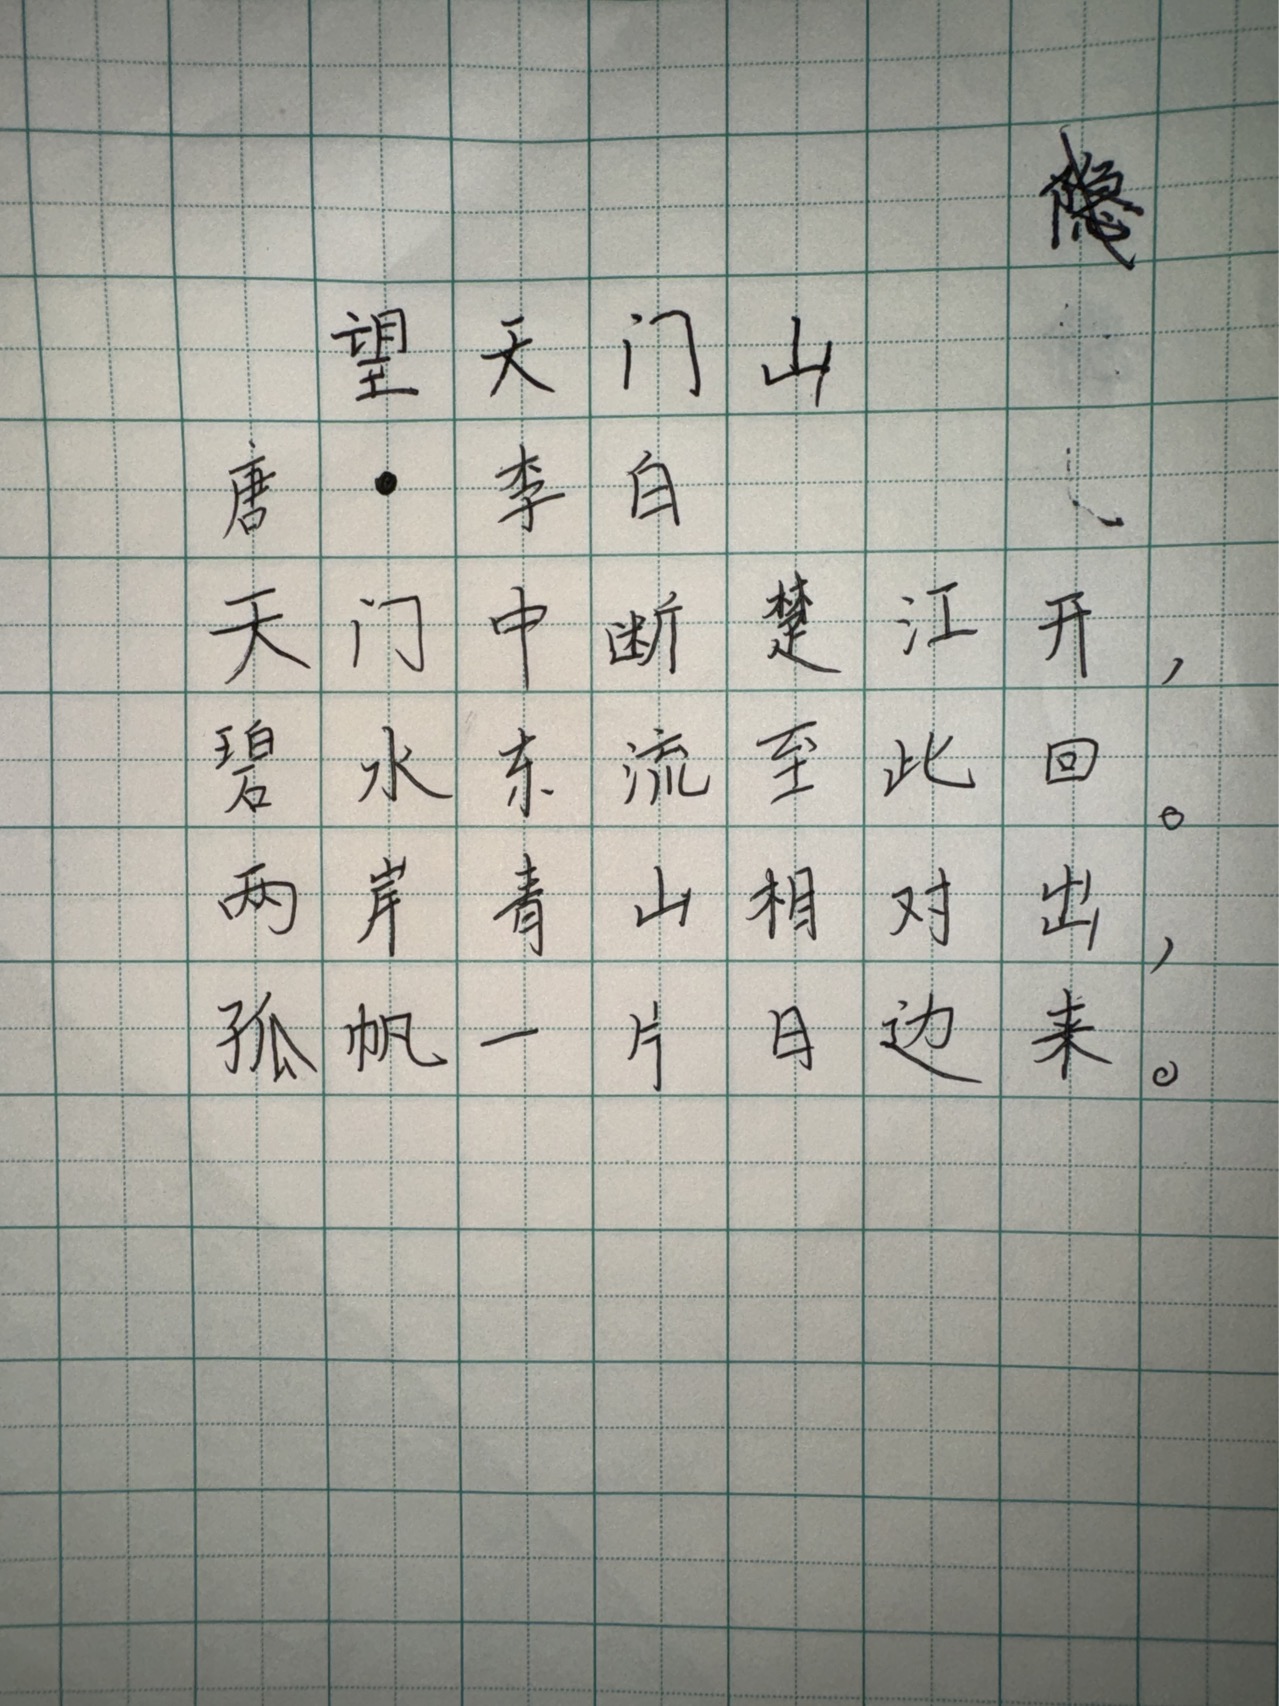 望天门山
唐·李白
天门中断楚江开，
碧水东流至此回。
两岸青山相对出，
孤帆一片日边来。